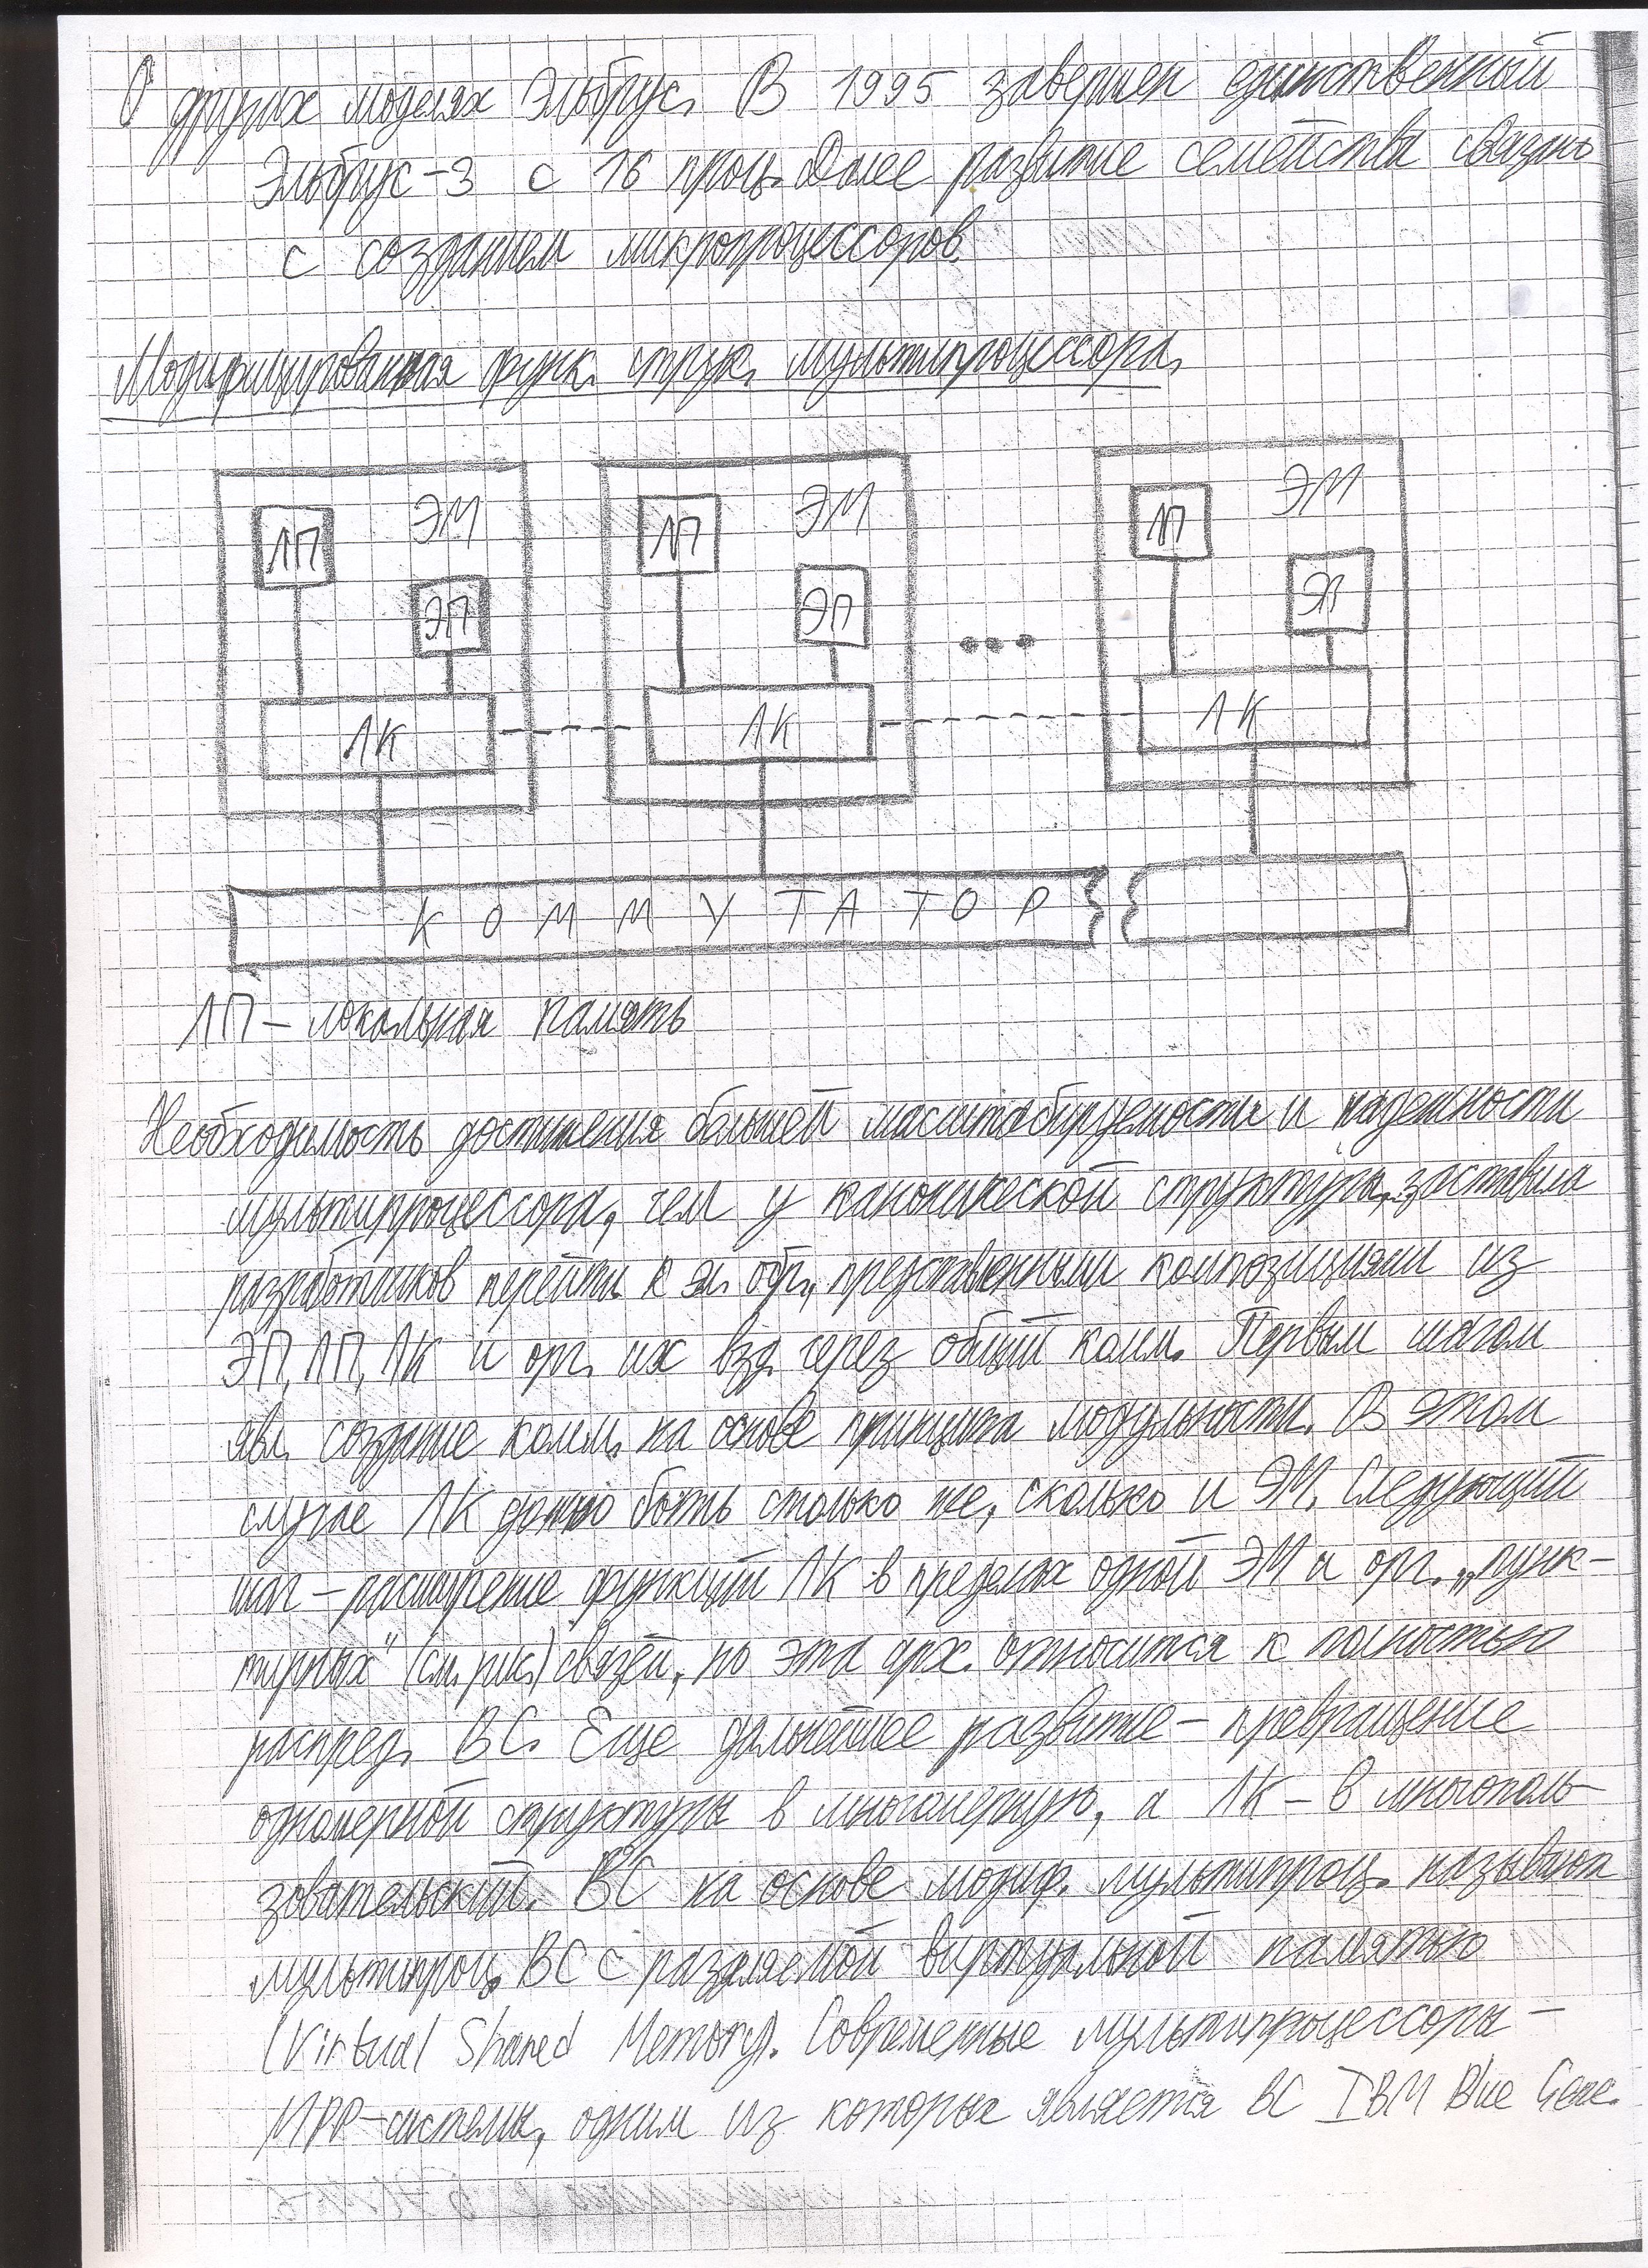 О других моделях Эльбрус. В 1995 завершен единственный
Эльбрус-3 с 16 проц. Далее развитие семейства связано
с созданием микропроцессоров.
Модифицированная функ. струк. мультипроцессора.
ЛП ЭМ ЛП ЭМ ЛП ЭМ
ЭП ЭП ... ЭП
ЛК ЛК ЛК
КОММУТАТОР
ЛП – локальная память
Необходимость достижения большей масштабируемости и надежности
мультипроцессора, чем у канонической структуры, заставила
разработчиков перейти к эл. обр., представленным композициями из
ЭП, ЛП, ЛК и орг. их взд. через общий комм. Первым шагом
явл. создание комм. на основе принципа модульности. В этом
случае ЛК должно быть столько же, сколько и ЭМ. Следующий
шаг – расширение функций ЛК в пределах одной ЭМ и орг. „пунк-
тирных" (см. рис.) связей, но эта арх. относится к полностью
распред. ВС. Еще дальнейшее развитие – превращение
одномерной структуры в многомерную, а ЛК – в многополь-
зовательский. ВС на основе модиф. мультипроц. называют
мультипроц. ВС с разделяемой виртуальной памятью
(Virtual Shared Memory). Современные мультипроцессоры –
MPP-системы, одним из которых является ВС IBM Blue Gene.